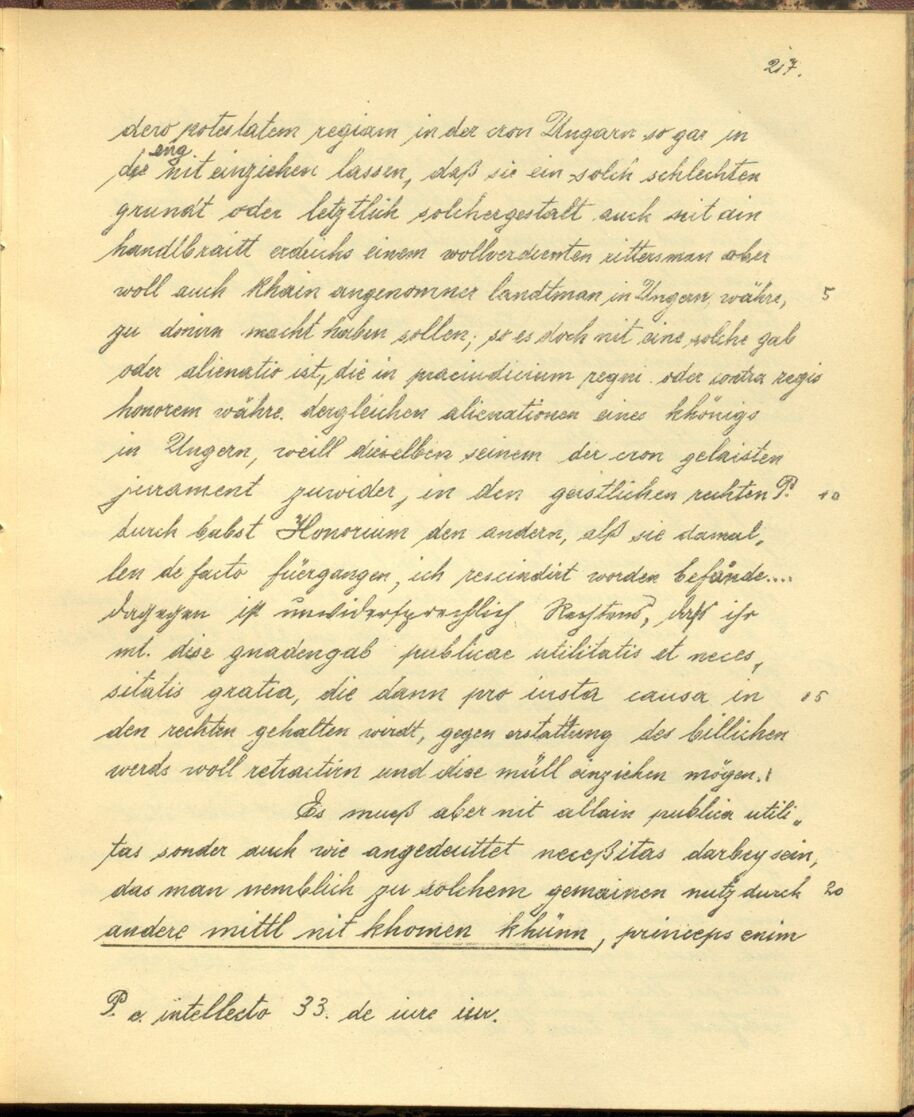 217.
dero potestatem regiam in der cron Ungarn so gar in
die eng nit einziehen lassen, daß sie ein solch schlechten
grundt oder letztlich solchergestalt auch mit ain
handlbraitt erdrichs einem wollverdienten rittersman ober
woll auch khain angenomner landtman in Ungern währe, 5
zu donirn macht haben sollen; so es doch nit eine solche gab
oder alienatio ist, die in praeiudicium regni oder contra regis
honorem währe dergleichen alienationen eines khönigs
in Ungern, weill dieselben seinem der cron gelaisten
jurament zuwider, in den geistlichen rechten P. 10
durch babst Honorium den andern, alß sie damal„
len de facto füergangen, ich rescindirt worden befånde....
dagegen ist unwidersprechlich Rechtens, daß ihr
mt. dise gnadengab publicae utilitatis et neces„
sitatis gratia, die dann pro iusta causa in 15
den rechten gehalten wirdt, gegen erstattung des billichen
werds woll retractirn und dise müll einziehen mögen.
Es mueß aber nit allain publica utili„
tas sonder auch wie angedeuttet neceßitas darbey sein,
das man nemblich zu solchem gemainen nutz durch 20
andere mittl nit khomen khünn, princeps enim
P. c. intellecto 33. de iure iur.